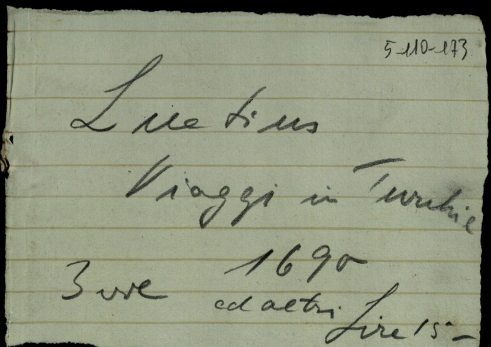 5-110-173
Luetius
Viaggi in Turchia
1690
3 vol ed altri Lire 15-